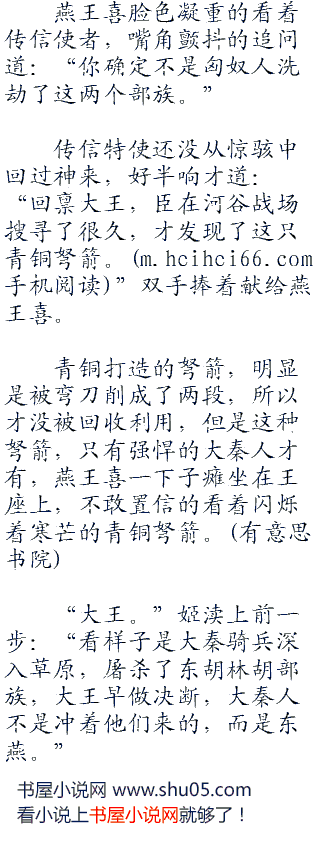 燕王喜脸色凝重的看着
传信使者，嘴角颤抖的追问
道：“你确定不是匈奴人洗
劫了这两个部族。”
传信特使还没从惊骇中
回过神来，好半响才道：
“回禀大王，臣在河谷战场
搜寻了很久，才发现了这只
青铜弩箭。(m.hcihci66.com
手机阅读)”双手捧着献给燕
王喜。
青铜打造的弩箭，明显
是被弯刀削成了两段，所以
才没被回收利用，但是这种
弩箭，只有强悍的大秦人才
有，燕王喜一下子瘫坐在王
座上，不敢置信的看着闪烁
着寒芒的青铜弩箭。(有意思
书院)
“大王。”姬渎上前一
步：“看样子是大秦骑兵深
入草原，屠杀了东胡林胡部
族，大王早做决断，大秦人
不是冲着他们来的，而是东
燕。”
书屋小说网 www.shu05.com
看小说上书屋小说网就够了！